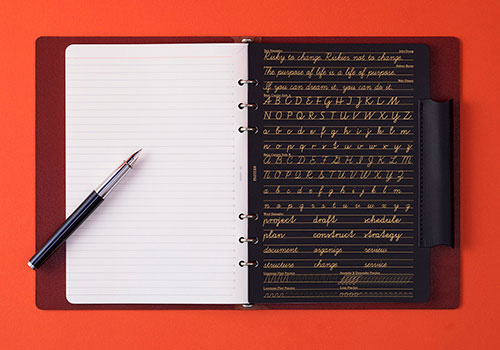 John Young
Risky to change. Riskier not to change.
Robert Byrne
The purpose of life is a life of purpose.
Walt Disney
If you can dream it, you can do it.
A B C D E F G H I J K L M
N O P Q R S T U V W X Y Z
a b c d e f g h i j k l m
n o p q r s t u v w x y z
A B C D E F G H I J K L M
N O P Q R S T U V W X Y Z
a b c d e f g h i j k l m
n o p q r s t u v w x y z
project draft schedule
plan construct strategy
document organize review
structure change service